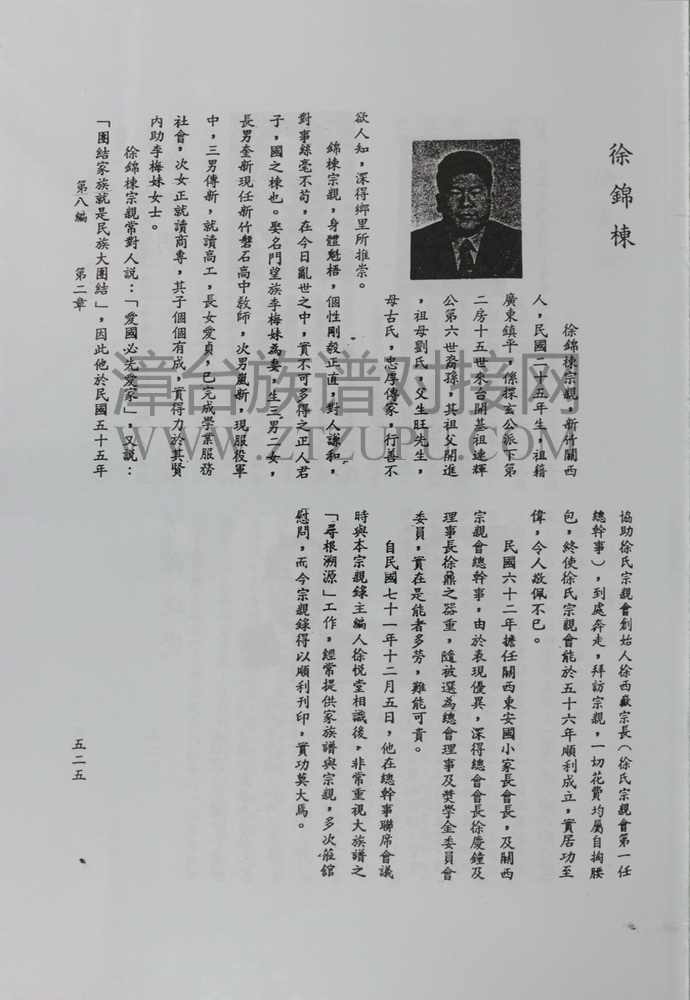 徐錦棟
徐錦棟宗親，新竹關西
人，民國二十五年生，祖籍
廣東鎮平，係探玄公派下第
二房十五世來台開基祖連輝
公第六世裔孫，其祖父開進
，祖母劉氏，父生旺先生，
母古氏，忠厚傳家，行善不
欲人知，深得鄉里所推崇。
錦棟宗親，身體魁梧，個性剛毅正直，對人謙和，
對事絲毫不苟，在今日亂世之中，實不可多得之正人君
子，國之棟也。娶名門望族李梅妹為妻，生三男二女，
長男奎新現任新竹磐石高中教師，次男嵐新，現服役軍
中，三男傳新，就讀高工，長女愛貞，已完成學業服務
社會，次女正就讀商專，其子個個有成，實得力於其賢
內助李梅妹女士。
徐錦棟宗親常對人說：「愛國必先愛家」，又說：
「團結家族就是民族大團結」，因此他於民國五十五年
協助徐氏宗親會創始人徐西嶽宗長（徐氏宗親會第一任
總幹事），到處奔走，拜訪宗親，一切花費均屬自掏腰
包，終使徐氏宗親會能於五十六年順利成立，實居功至
偉，令人敬佩不已。
民國六十二年擔任關西東安國小家長會長，及關西
宗親會總幹事，由於表現優異，深得總會會長徐慶鐘及
理事長徐鼐之器重，隨被選為總會理事及獎學金委員會
委員，實在是能者多勞，難能可貴。
自民國七十一年十二月五日，他在總幹事聯席會議
時與本宗親錄主編人徐悅堂相識後，非常重視大族譜之
「尋根溯源」工作，經常提供家族譜與宗親，多次蒞舘
慰問，而今宗親錄得以順利刊印，實功莫大焉。
第八編　第二章
五二五
漳台族谱对接网
WWW.ZTZUPU.COM